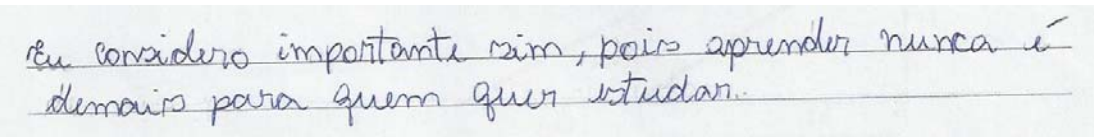 Eu considero importante sim, pois aprender nunca é
demais para quem quer estudar.